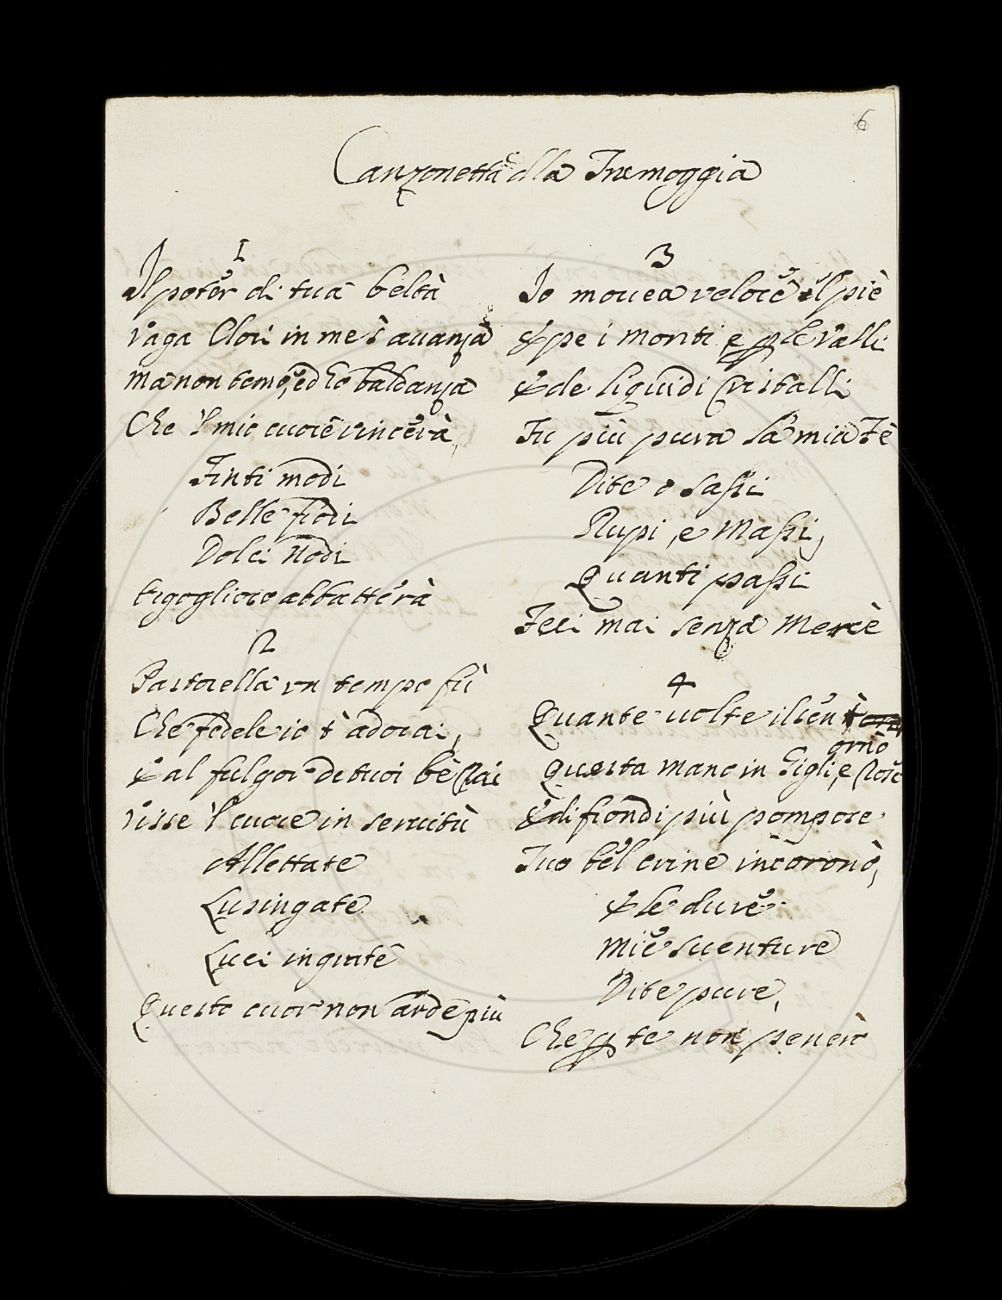 6
Canzonetta alla Tramoggia
1
Il poter di tua beltà
Vaga Clori in me s'auanza
ma non temo, ed hò baldanza
Che 'l mio cuore vincerà,
Finti modi
Belle frodi
Dolci Nodi
L'igoglioso abbatterà
2
Pastorella un tempo fù
Che fedele io t'adorai,
E al fulgor de tuoi bè Rai
Visse 'l cuore in seruitù
Allettate
Lusingate
Luci ingrate
Questo cuor non arde più
3
Io mouea veloce il piè
E pe i monti e p le valli
E de liquidi Cristalli
Fu più pura la mia Fè
Dite o sassi
Rupi, e Massi,
Quanti passi
Feci mai senza Mercè
4
Quante uolte il sen t'
ornò
Questa mano in Gigli, e Rose
E di frondi più pompose
Tuo bel crine incoronò,
E le dure
Mie suenture
Dite pure,
Che p te non penerò